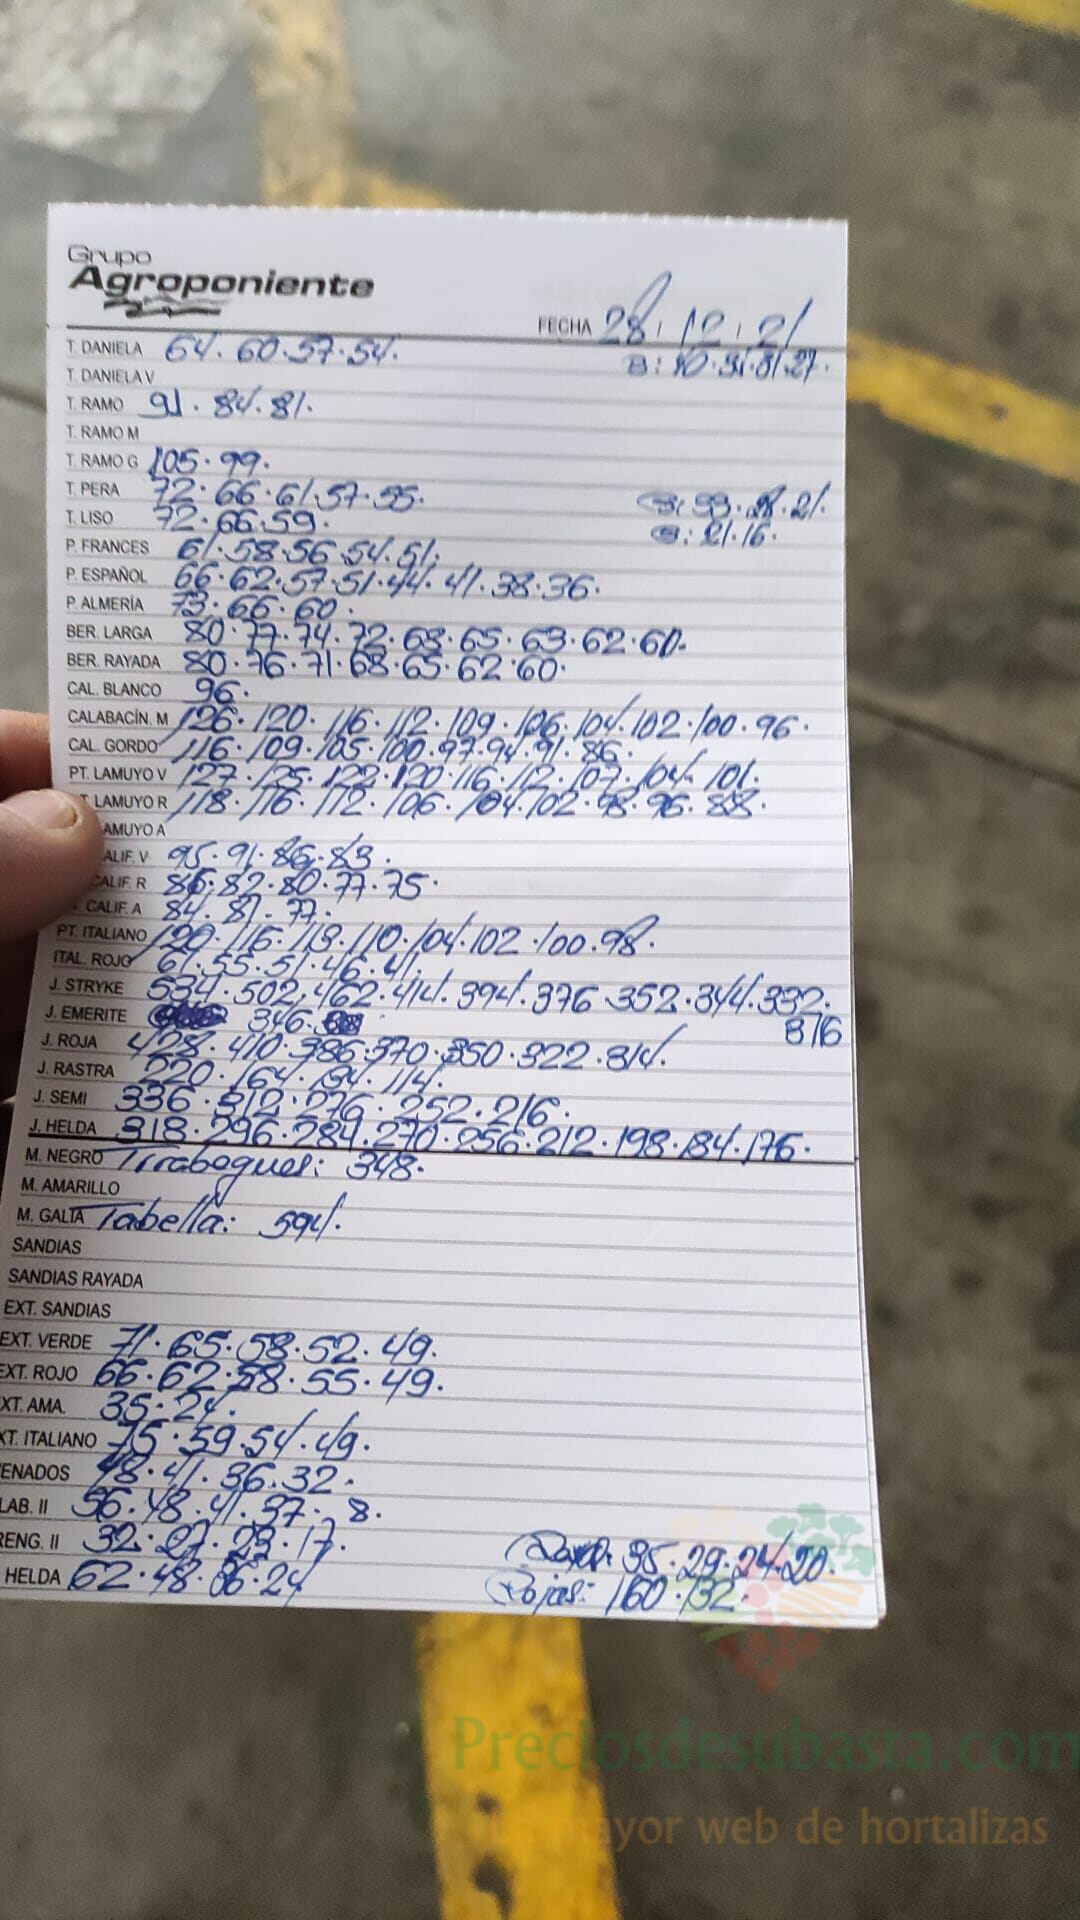 Grupo
Agroponiente
FECHA 28/12/21
T. DANIELA 64.60.57.54.
T. DANELA V
T. RAMO 91.84.81.
T. RAMO M
T. RAMO G 105.99.
T. PERA 72.66.61.57.55.
T. LISO 72.66.59. B: 21.16.
P. FRANCES 61.58.56.54.51.
P. ESPAÑOL 66.62.57.51.44.41.38.36.
P. ALMERÍA 73.66.60.
BER. LARGA 80.77.74.72.68.65.63.62.60.
BER. RAYADA 80.76.71.68.65.62.60.
CAL. BLANCO 96.
CALABACÍN. M 126.120.116.112.109.106.104.102.100.96.
CAL. GORDO 116.109.105.100.97.94.91.86.
PT. LAMUYO V 127.125.122.120.116.112.107.104.101.
T. LAMUYO R 118.116.112.106.104.102.98.96.88.
AMUYO A
ALIF. V 95.91.86.83.
CALIF. R 86.82.80.77.75.
CALIF. A 84.81.77.
PT. ITALIANO 120.116.113.110.104.102.100.98.
ITAL. ROJO 61.55.51.46.41.
J. STRYKE 534.502.462.414.394.376.352.344.332.
316
J. EMERITE 346.
J. ROJA 428.410.386.370.350.322.314.
J. RASTRA 220.164.134.114.
J. SEMI 336.312.276.252.216.
J. HELDA 318.296.284.270.256.212.198.184.176.
M. NEGRO Tirabeques: 348.
M. AMARILLO
M. GALIA Tabella: 594.
SANDIAS
SANDIAS RAYADA
EXT. SANDIAS
EXT. VERDE 71.65.58.52.49.
EXT. ROJO 66.62.58.55.49.
XT. AMA. 35.24.
XT. ITALIANO 75.59.54.49.
ENADOS 48.41.36.32.
LAB. II 56.48.41.37. 8.
RENG. II 32.27.23.17.
35.29.24.20.
HELDA 62.48.36.24
Rojas: 160.132.
Preciosdesubasta.com
La mayor web de hortalizas